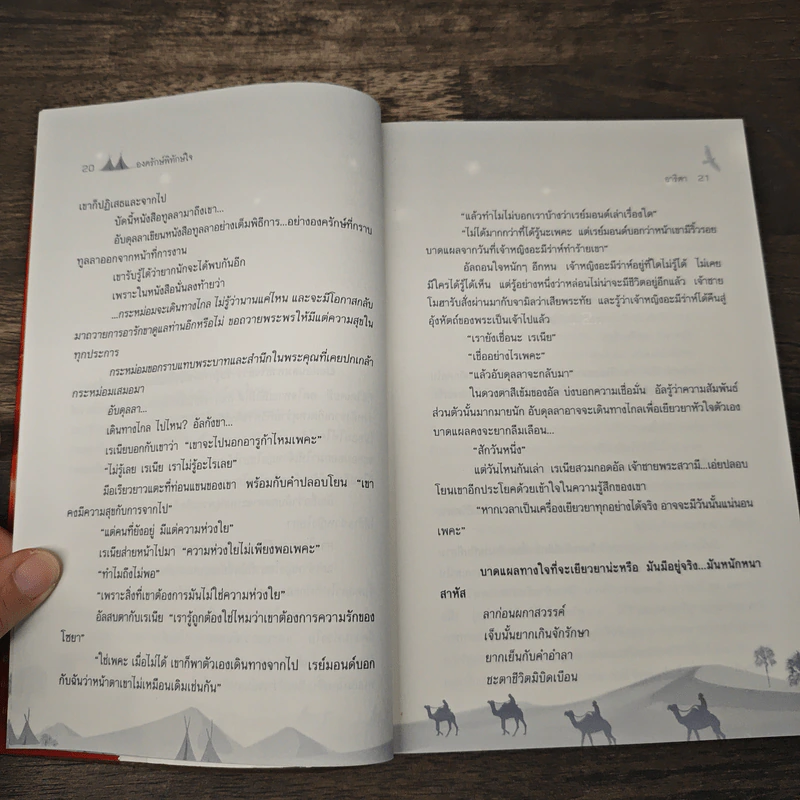 20 องครักษ์พิทักษ์ใจ
เขาก็ปฏิเสธและจากไป
บัดนี้หนังสือทูลลามาถึงเขา...
อับดุลลาเขียนหนังสือทูลลาอย่างเต็มพิธีการ...อย่างองครักษ์ที่กราบ
ทูลลาออกจากหน้าที่การงาน
เขารับรู้ได้ว่ายากนักจะได้พบกันอีก
เพราะในหนังสือนั่นลงท้ายว่า
...กระหม่อมจะเดินทางไกล ไม่รู้ว่านานแค่ไหน และจะมีโอกาสกลับ
มาถวายการอารักขาดูแลท่านอีกหรือไม่ ขอถวายพระพรให้มีแต่ความสุขใน
ทุกประการ
กระหม่อมขอกราบแทบพระบาทและสำนึกในพระคุณที่เคยปกเกล้า
กระหม่อมเสมอมา
อับดุลลา...
เดินทางไกล ไปไหน? อัลกังขา...
เรเนียบอกกับเขาว่า “เขาจะไปนอกอารูก้าไหมเพคะ”
“ไม่รู้เลย เรเนีย เราไม่รู้อะไรเลย”
มือเรียวยาวแตะที่ท่อนแขนของเขา พร้อมกับคำปลอบโยน “เขา
คงมีความสุขกับการจากไป”
“แต่คนที่ยังอยู่ มีแต่ความห่วงใย”
เรเนียส่ายหน้าไปมา “ความห่วงใยไม่เพียงพอเพคะ”
“ทำไมถึงไม่พอ”
“เพราะสิ่งที่เขาต้องการมันไม่ใช่ความห่วงใย”
อัลสบตากับเรเนีย “เรารู้ถูกต้องใช่ไหมว่าเขาต้องการความรักของ
โซยา”
“ใช่เพคะ เมื่อไม่ได้ เขาก็พาตัวเองเดินทางจากไป เรย์มอนด์บอก
กับฉันว่าหน้าตาเขาไม่เหมือนเดิมเช่นกัน”
อาริตา 21
“แล้วทำไมไม่บอกเราบ้างว่าเรย์มอนด์เล่าเรื่องใด”
“ไม่ได้มากกว่าที่ได้รู้นะเพคะ แต่เรย์มอนด์บอกว่าหน้าเขามีริ้วรอย
บาดแผลจากวันที่เจ้าหญิงอะมีร่าห์ทำร้ายเขา”
อัลถอนใจหนักๆ อีกหน เจ้าหญิงอะมีร่าห์อยู่ที่ใดไม่รู้ได้ ไม่เคย
มีใครได้รู้ได้เห็น แต่รู้อย่างหนึ่งว่าหล่อนไม่น่าจะมีชีวิตอยู่อีกแล้ว เจ้าชาย
โมฮารับสั่งผ่านมากับจามิลว่าเสียพระทัย และรู้ว่าเจ้าหญิงอะมีร่าห์ได้คืนสู่
อุ้งหัตถ์ของพระเป็นเจ้าไปแล้ว
“เรายังเชื่อนะ เรเนีย”
“เชื่ออย่างไรเพคะ”
“แล้วอับดุลลาจะกลับมา”
ในดวงตาสีเข้มของอัล บ่งบอกความเชื่อมั่น อัลรู้ว่าความสัมพันธ์
ส่วนตัวนั้นมากมายนัก อับดุลลาอาจจะเดินทางไกลเพื่อเยียวยาหัวใจตัวเอง
บาดแผลคงจะยากลืมเลือน...
“สักวันหนึ่ง”
แต่วันไหนกันเล่า เรเนียสวมกอดอัล เจ้าชายพระสวามี...เอ่ยปลอบ
โยนเขาอีกประโยคด้วยเข้าใจในความรู้สึกของเขา
“หากเวลาเป็นเครื่องเยียวยาทุกอย่างได้จริง อาจจะมีวันนั้นแน่นอน
เพคะ”
บาดแผลทางใจที่จะเยียวยาน่ะหรือ มันมีอยู่จริง...มันหนักหนา
สาหัส
ลาก่อนผกาสวรรค์
เจ็บนั้นยากเกินจักรักษา
ยากเย็นกับคำอำลา
ชะตาชีวิตมิบิดเบือน